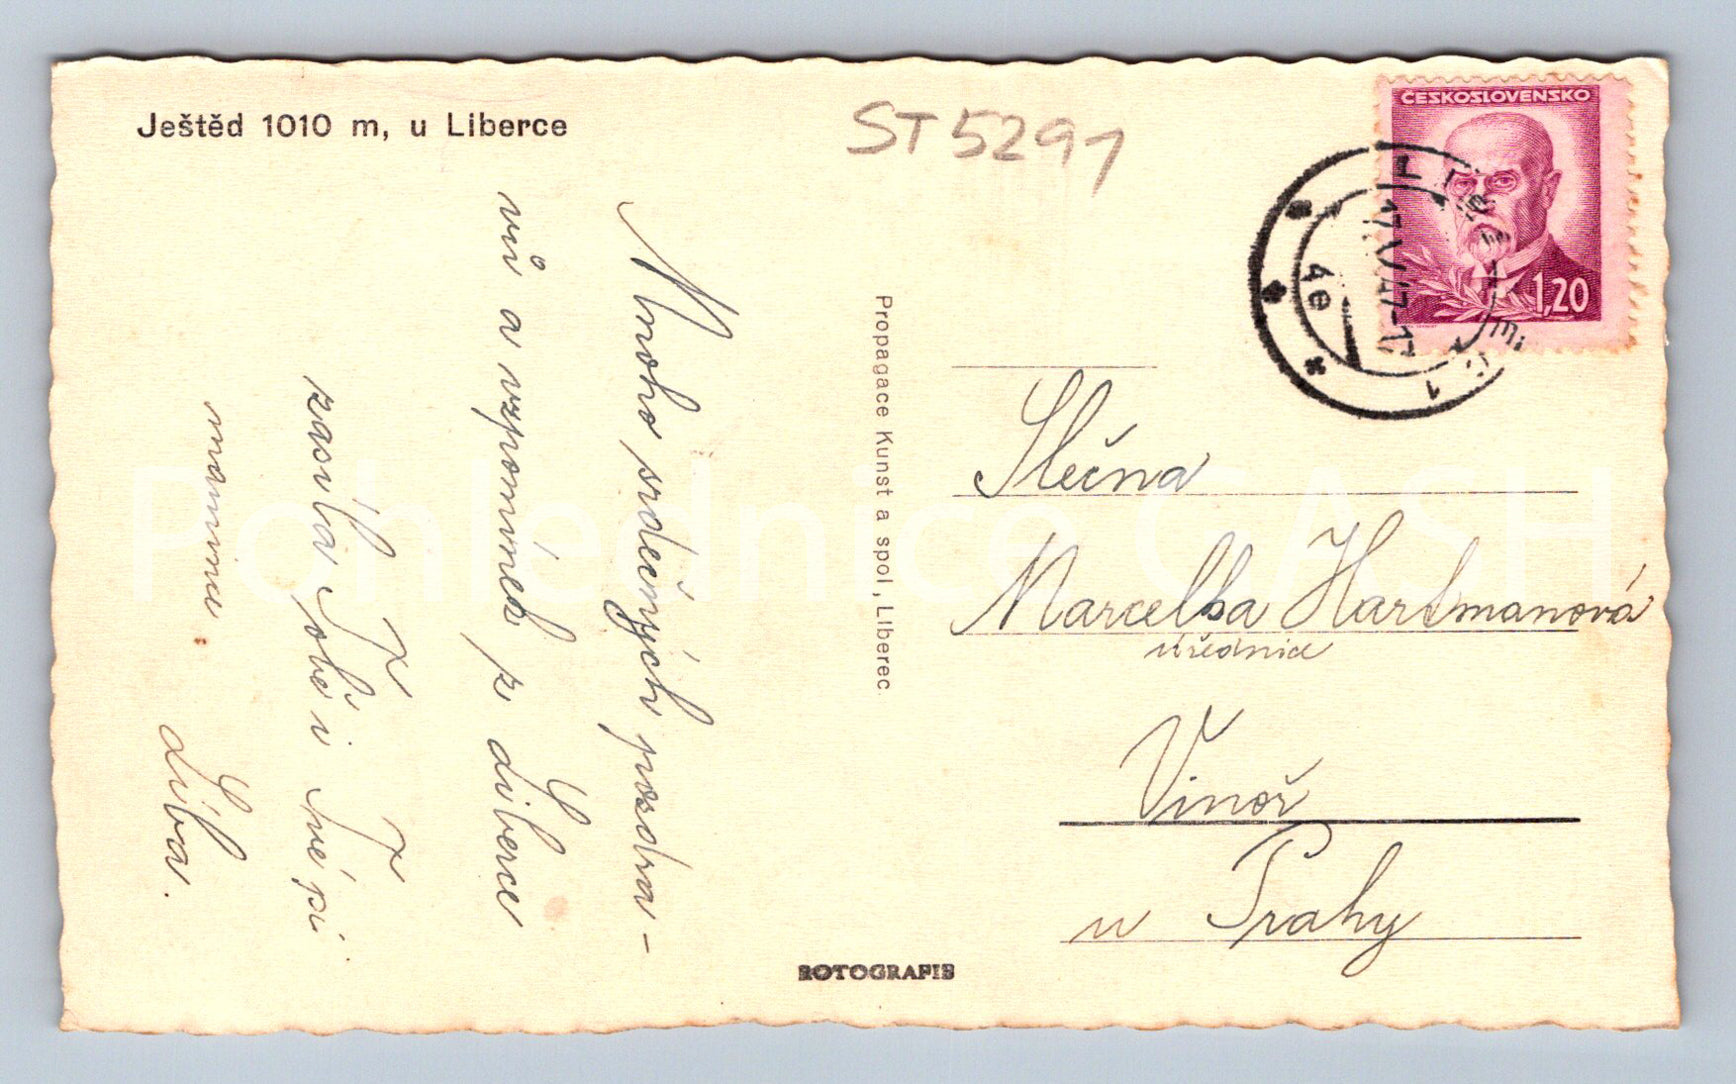 Ještěd 1010 m, u Liberce
ST5291
ČESKOSLOVENSKO
1,20
17.V.47-17
4e
1
Mnoho srdečných pozdra-
vů a vzpomínek z Liberce
zasílá Tobě i Tvé pí
mamince
Líba.
Propagace Kunst a spol, Liberec
Slečna
Marcelka Hartmanová
úřednice
Vinoř
u Prahy
ROTOGRAFIE
Pohlednice CASH